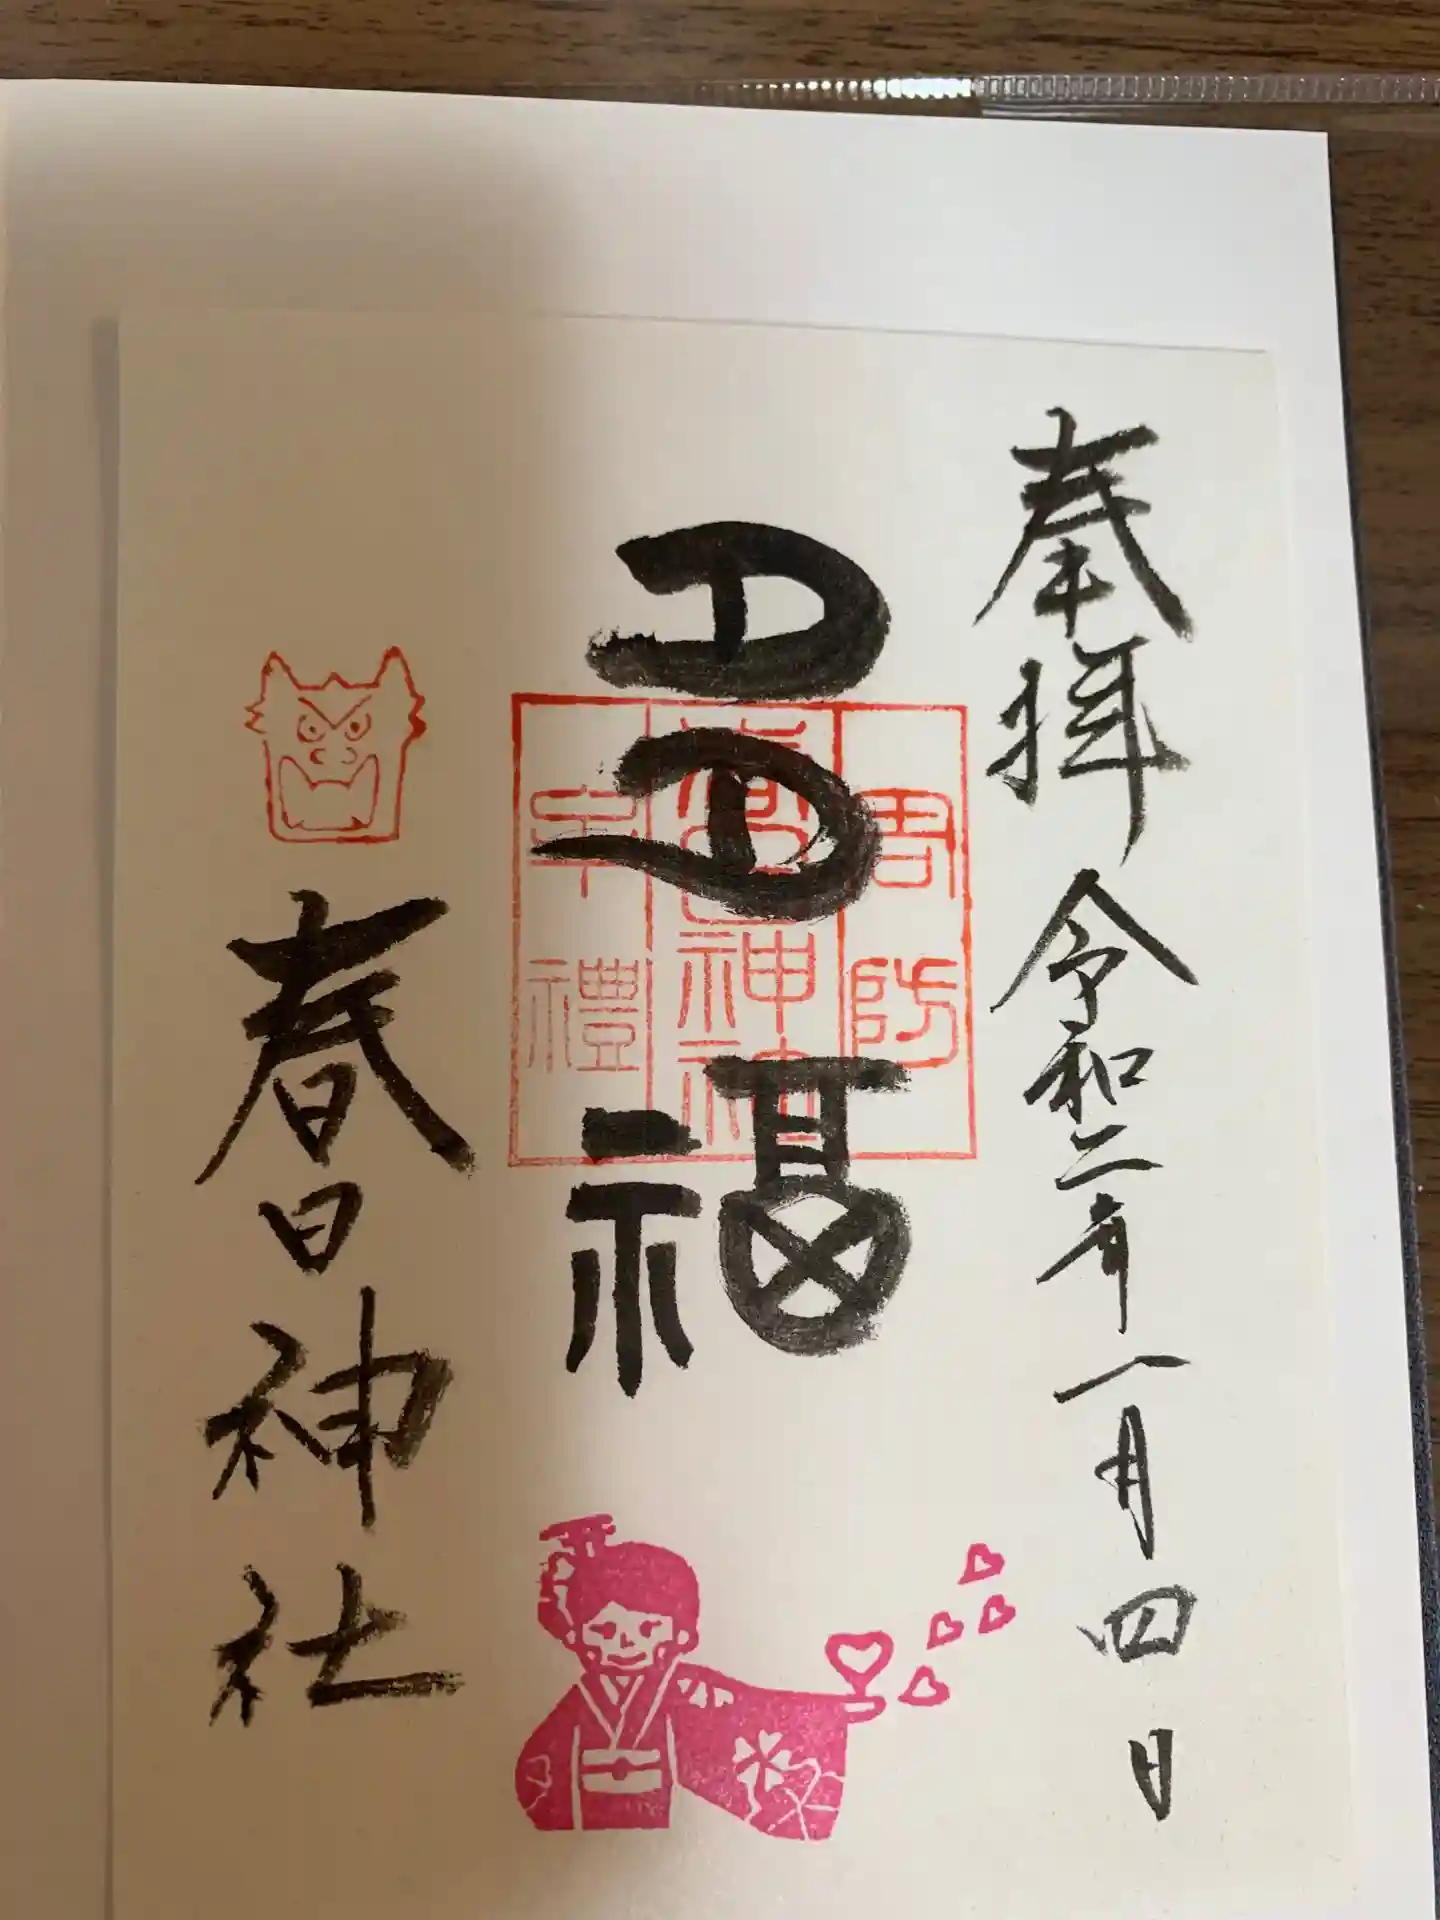 奉拝 令和二年一月四日
多福
周防
春日神社
牟禮
春日神社